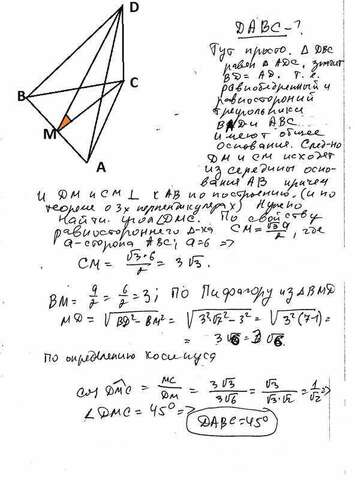 D
DABC-?
Тут просто. Δ DBC
равен Δ ADC, значит
BD = AD. Т.е.
равнобедренный и
равносторонний
треугольники
BAD и ABC
имеют общее
основание. След-но
DM и CM исходят
из середины осно-
вания AB причем
B
C
M
A
и DM и CM ⊥ к AB по построению. (и по
теореме о 3х перпендикулярах) Нужно
найти угол DMC. По свойству
равностороннего Δ-ка CM = √3a/2, где
a-сторона ABC; a=6 =>
CM = √3·6/2 = 3√3.
BM = a/2 = 6/2 = 3; По Пифагору из Δ BMD
MD = √BD²-BM² = √3²√7²-3² = √3²(7-1) =
= 3√6 = 3√6
По определению косинуса
cos DMC = MC/DM = 3√3/3√6 = √3/√3·√2 = 1/√2 =>
∠DMC = 45° =>
DABC=45°